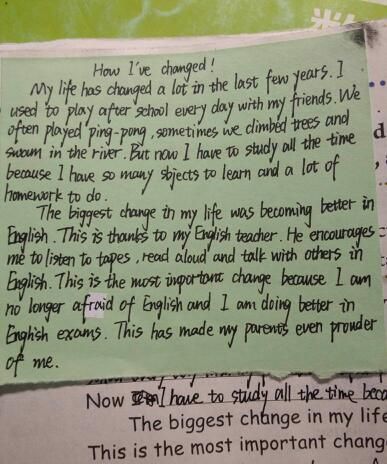 How I've changed!
My life has changed a lot in the last few years. I
used to play after school every day with my friends. We
often played ping-pong, sometimes we climbed trees and
swam in the river. But now I have to study all the time
because I have so many sbjects to learn and a lot of
homework to do.
The biggest change in my life was becoming better in
English. This is thanks to my English teacher. He encourages
me to listen to tapes, read aloud and talk with others in
English. This is the most important change because I am
no longer afraid of English and I am doing better in
English exams. This has made my parents even prouder
of me.
Now I have to study all the time beca
The biggest change in my life
This is the most important chang